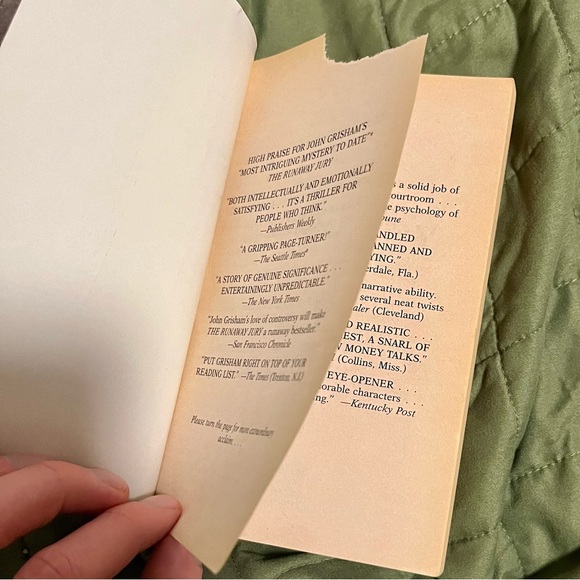 HIGH PRAISE FOR JOHN GRISHAM'S
"MOST INTRIGUING MYSTERY TO DATE"*
THE RUNAWAY JURY
"BOTH INTELLECTUALLY AND EMOTIONALLY
SATISFYING . . . IT'S A THRILLER FOR
PEOPLE WHO THINK."
—Publishers Weekly
"A GRIPPING PAGE-TURNER!"
—The Seattle Times*
"A STORY OF GENUINE SIGNIFICANCE . . .
ENTERTAININGLY UNPREDICTABLE."
—The New York Times
"John Grisham's love of controversy will make
THE RUNAWAY JURY a runaway bestseller."
—San Francisco Chronicle
"PUT GRISHAM RIGHT ON TOP OF YOUR
READING LIST." —The Times (Trenton, N.J.)
Please turn the page for more extraordinary
acclaim . . .
s a solid job of
ourtroom . . .
e psychology of
une
ANDLED
ANNED AND
YING."
erdale, Fla.)
narrative ability.
several neat twists
aler (Cleveland)
D REALISTIC . . .
EST, A SNARL OF
N MONEY TALKS."
(Collins, Miss.)
EYE-OPENER . . . .
orable characters . . .
ng." —Kentucky Post